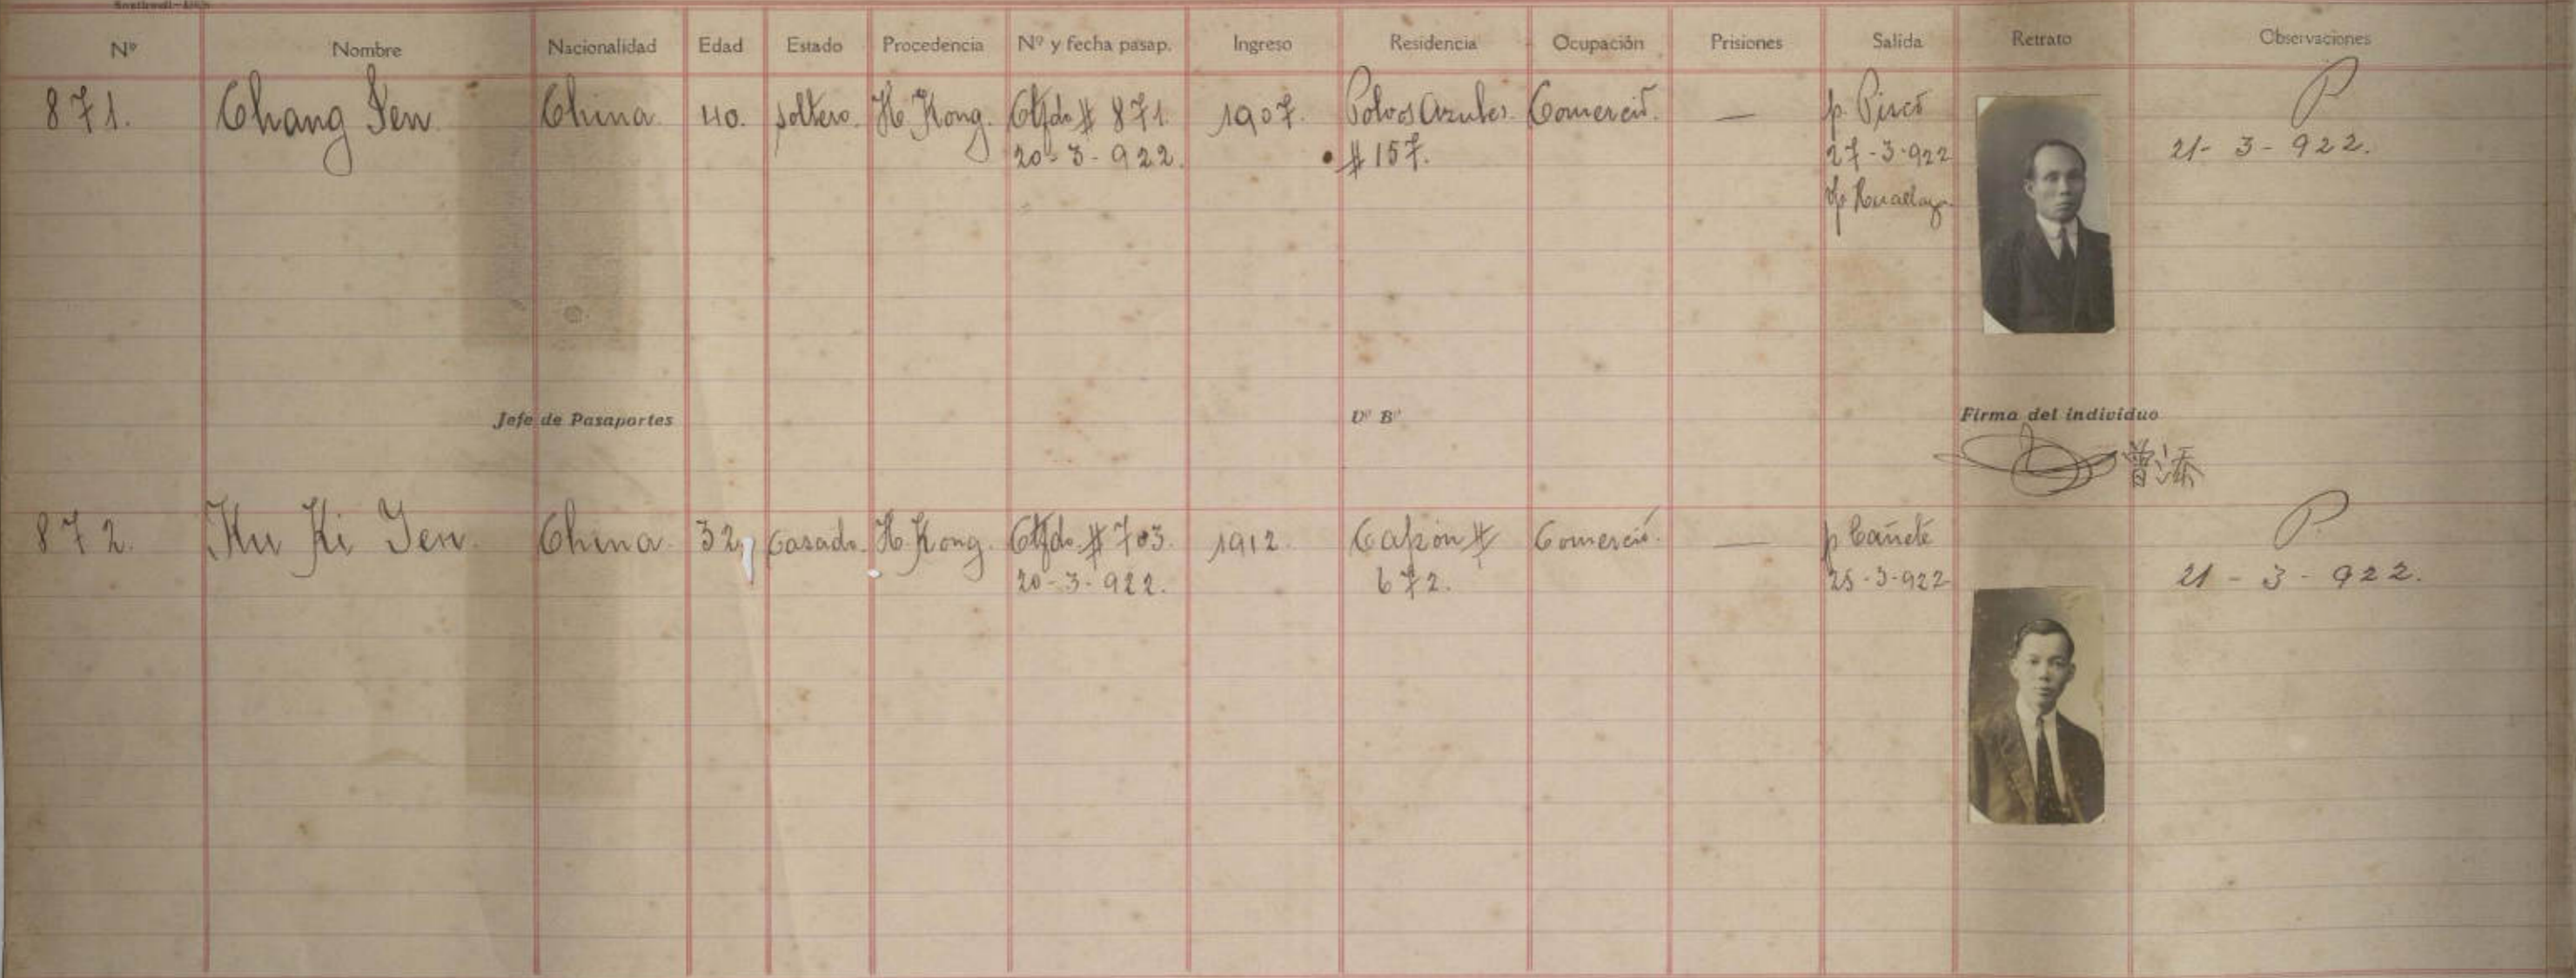 Nº Nombre Nacionalidad Edad Estado Procedencia Nº y fecha pasap. Ingreso Residencia Ocupación Prisiones Salida Retrato Observaciones
871. Chang Sen China 40. soltero. H. Kong. Ctfdo # 871 1907. Polvos Azules Comercio. — p. Pisco P
20-3-922. # 157. 27-3-922 21-3-922.
Huallaga
Jefe de Pasaportes Vº Bº Firma del individuo
曾添
872. Ku Ki Yen China 32, Casado. H. Kong. Ctfdo. # 703. 1912. Capón # Comercio. — p Cañete P.
20-3-922. 672. 25-3-922 21-3-922.